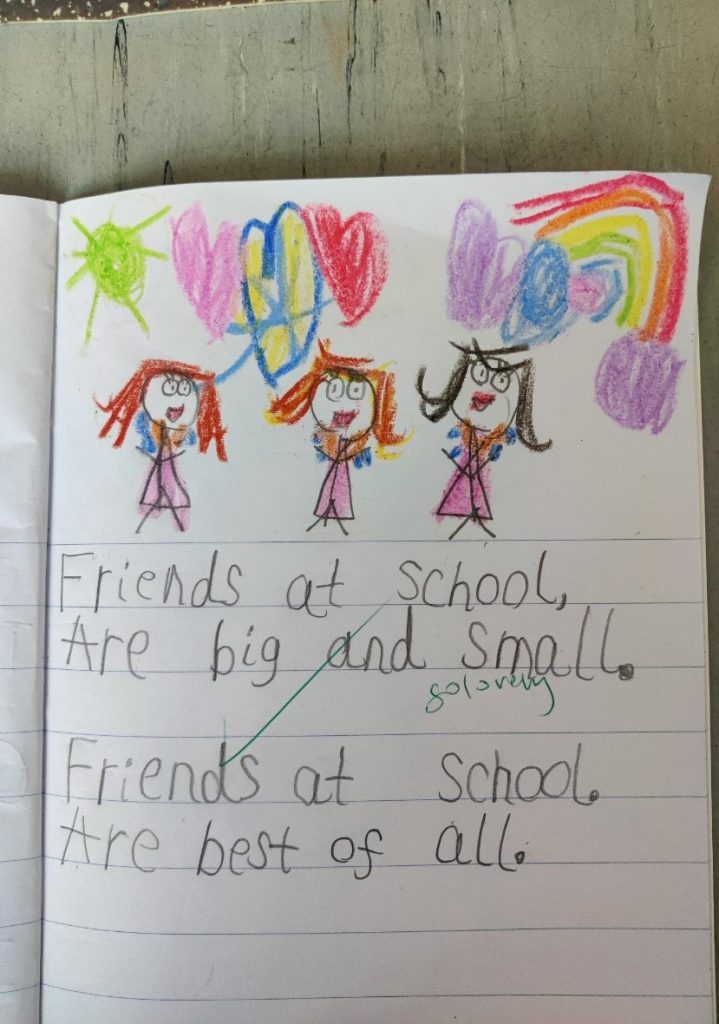 Friends at school,
Are big and small.
so lovely
Friends at school.
Are best of all.